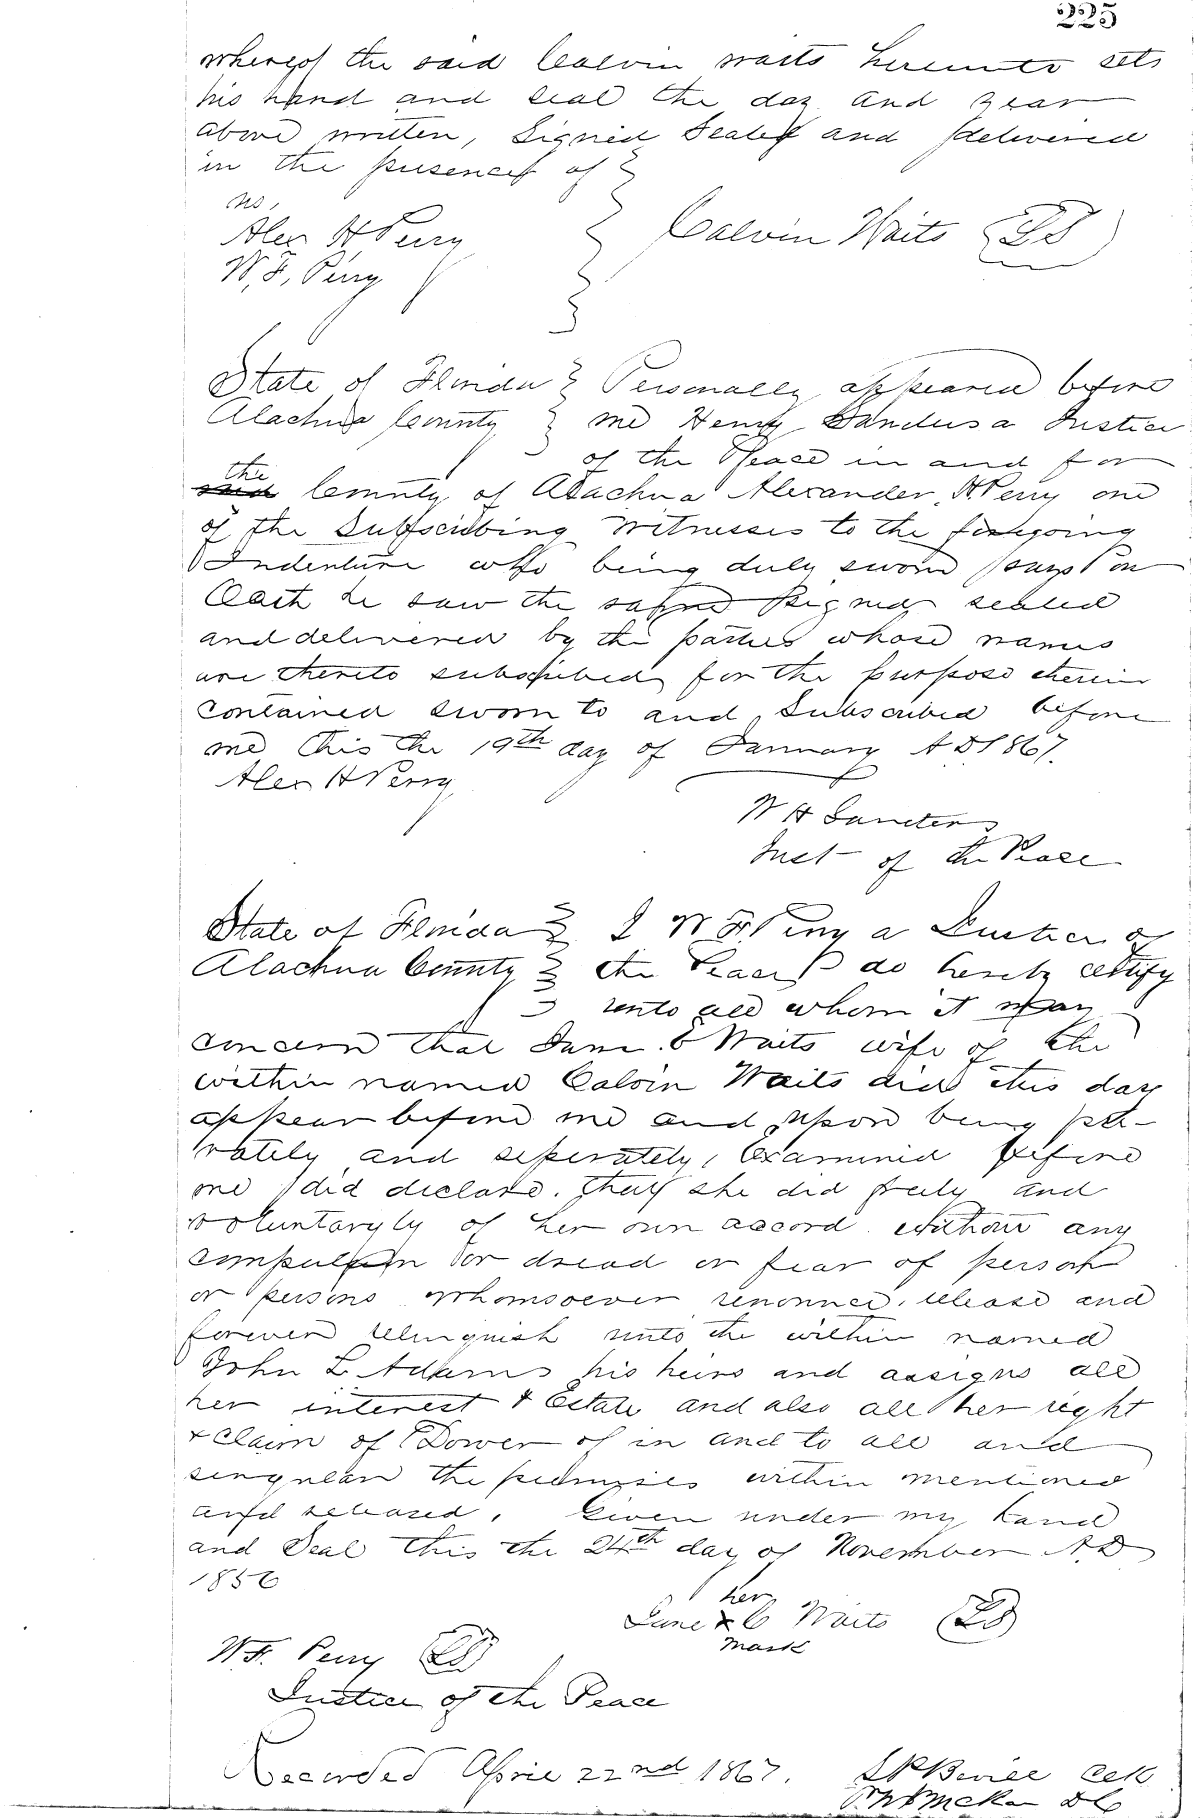 225
whereof the said Calvin Waits hereunto sets
his hand and seal the day and year
above written, Signed Sealed and delivered
in the presence of
Alex H Perry
W, F, Perry
Calvin Waits LS
State of Florida Personally appeared before
Alachua County me Henry Sanders a Justice
of the Peace in and for
the
said County of Alachua Alexander H Perry one
of the Subscribing Witnesses to the foregoing
Indenture who being duly sworn says on
Oath he saw the same signed sealed
and delivered by the parties whose names
are thereto subscribed for the purpose therein
contained sworn to and Subscribed before
me this the 19th day of January A D 1867.
Alex H Perry
W H Sanders
Just of the Peace
State of Florida I W F Perry a Justice of
Alachua County the Peace do hereby certify
unto all whom it may
concern that Jane C Waits wife of the
within named Calvin Waits did this day
appear before me and upon being pri-
vately and seperately, Examined before
me did declare. that she did freely and
voluntaryly of her own accord without any
compulsion or dread or fear of person
or persons whomsoever renounce. release and
forever relinquish unto the within named
John L Adams his heirs and assigns all
her interest & Estate and also all her right
& claim of Dower of in and to all and
singular the premises within mentioned
and released. Given under my hand
and Seal this the 24th day of November A.D
1856
her
Jane x C Waits LS
mark
W. F. Perry LS
Justice of the Peace
Recorded April 22nd 1867.
Clk
DC